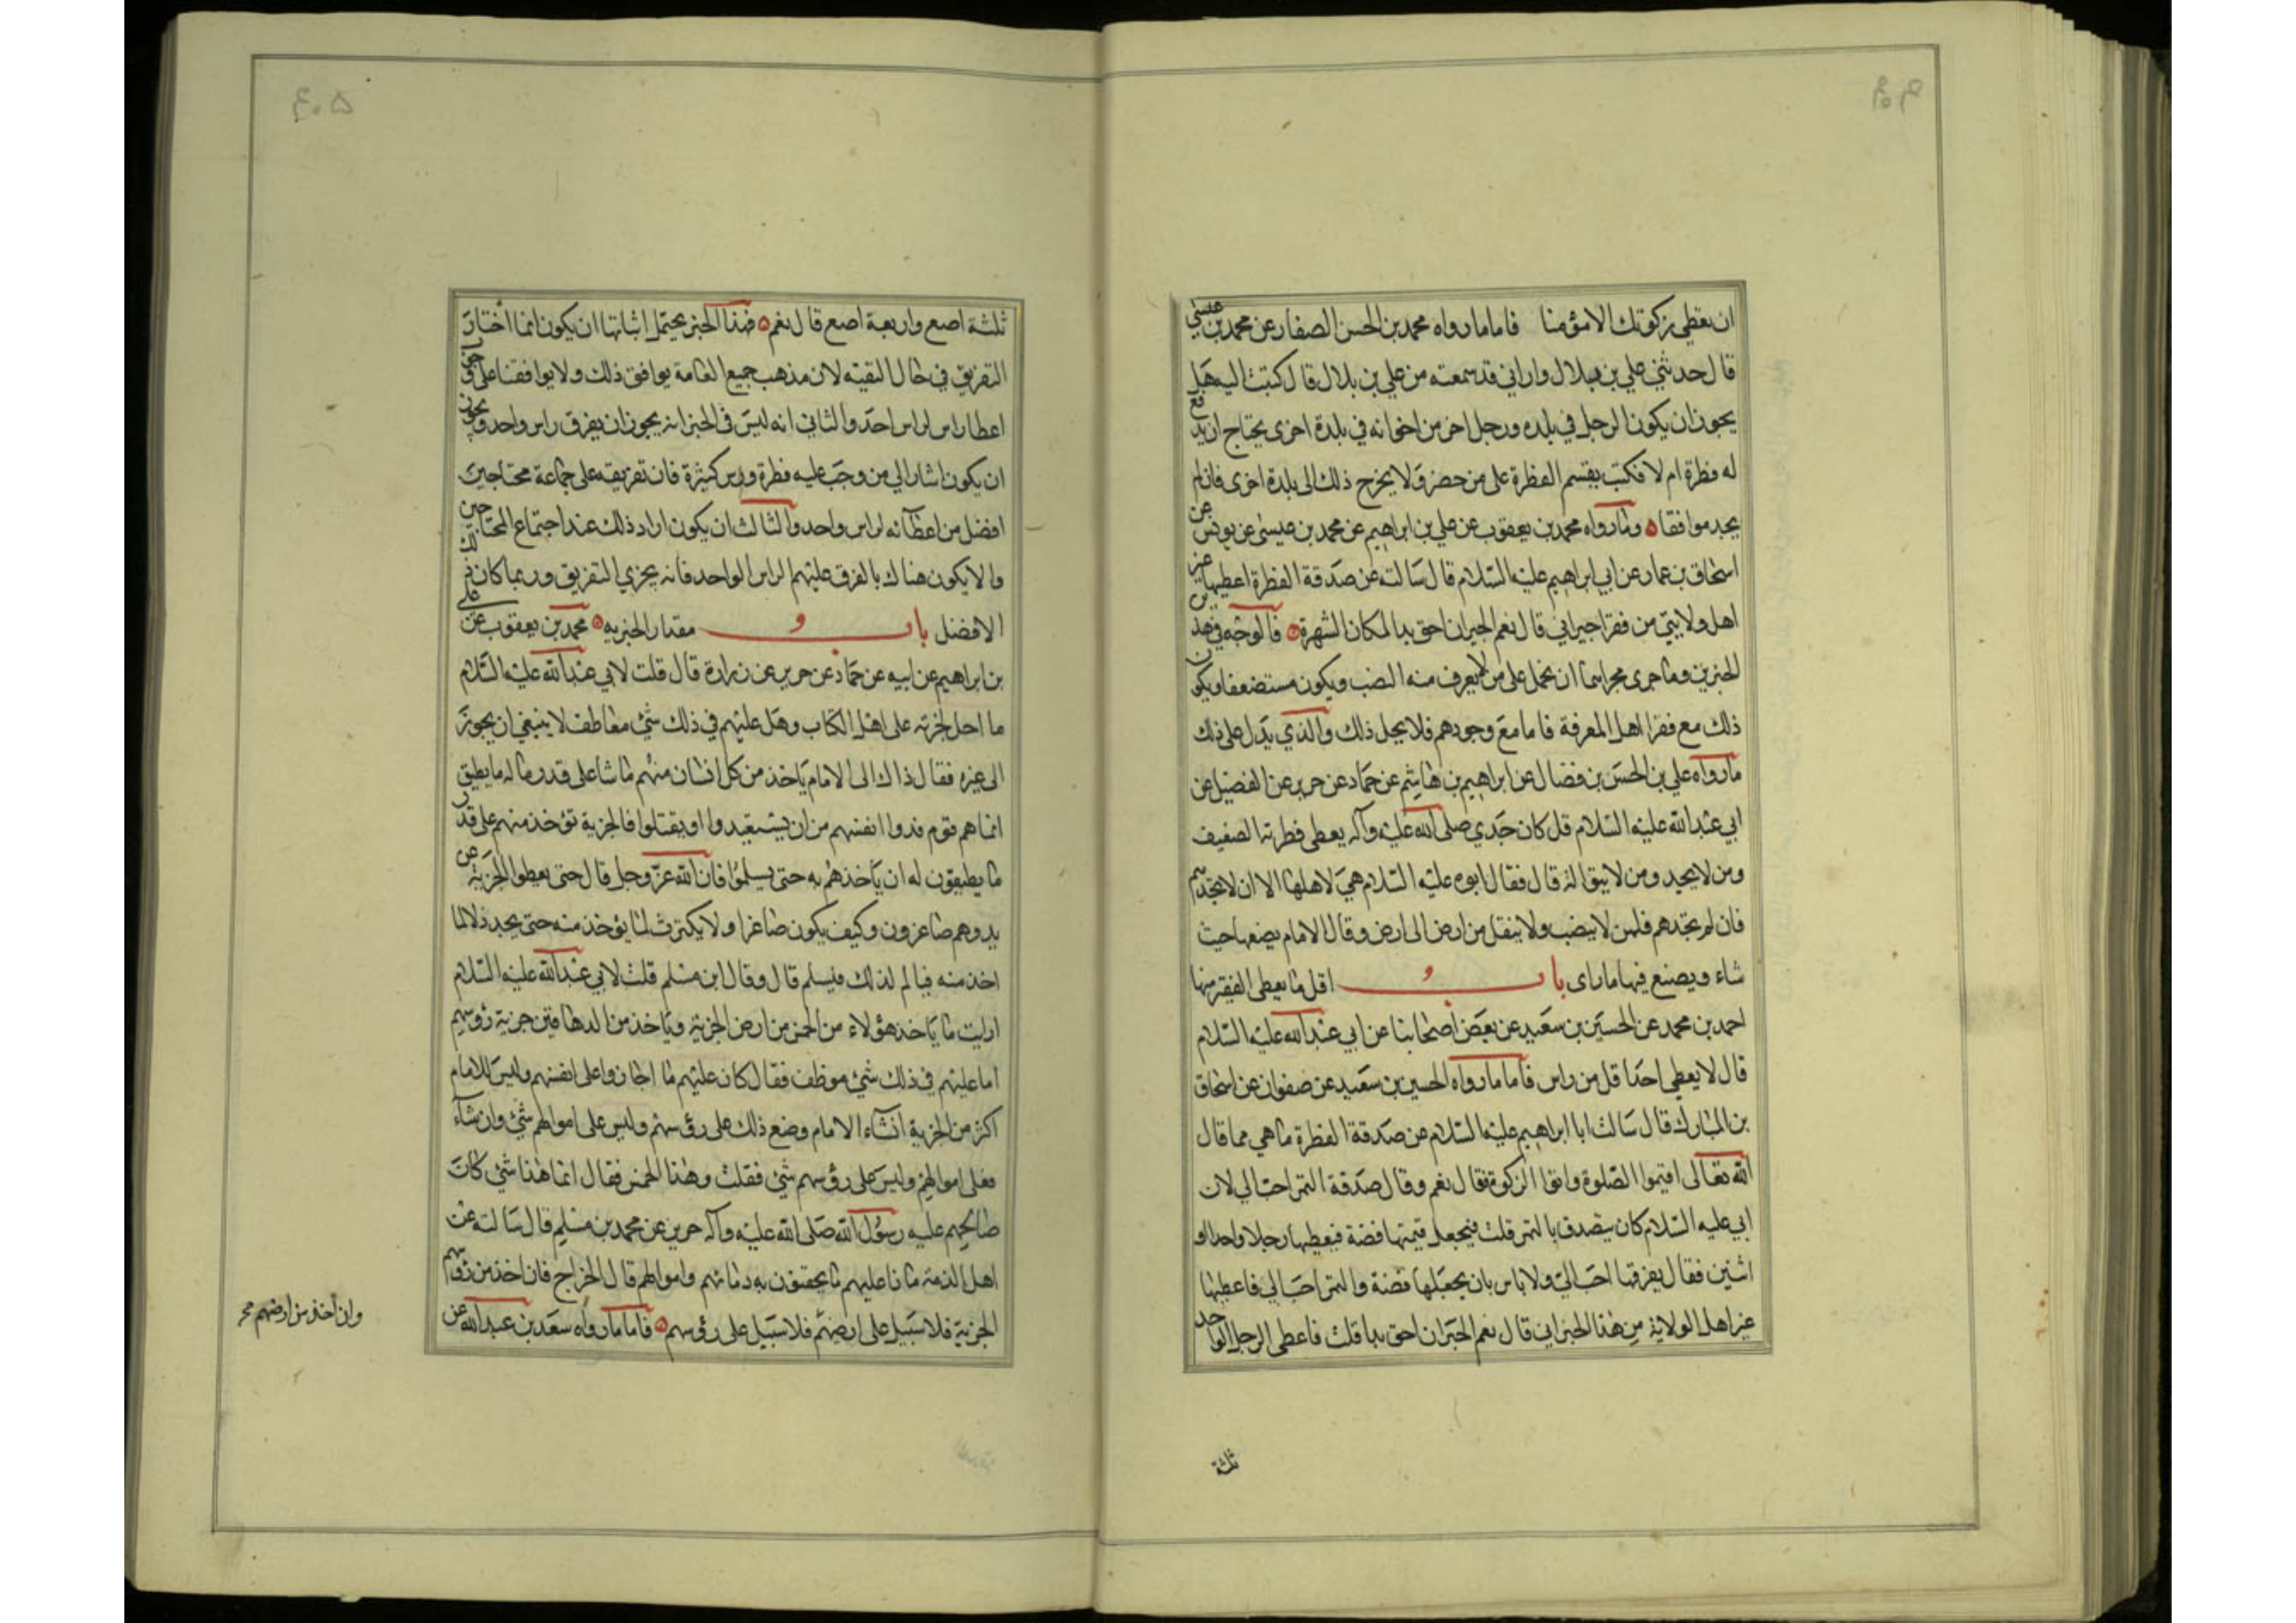 ان يعطى زكوتك الا مؤمنا فاما ما رواه محمد بن الحسن الصفار عن محمد بن عيسى
قال حدثني علي بن بلال واراني قد سمعته من علي بن بلال قال كتبت اليه هل
يجوز ان يكون الرجل في بلده ورجل اخر من اخوانه في بلدة اخرى يحتاج ان يدفع
له فطرة ام لا فكتب يقسم الفطرة على من حضر ولا يخرج ذلك الى بلدة اخرى فان لم
يجد موافقا وما رواه محمد بن يعقوب عن علي بن ابراهيم عن محمد بن عيسى عن يونس عن
اسحاق بن عمار عن ابي ابراهيم عليه السلام قال سالته عن صدقة الفطرة اعطيها غير
اهل ولايتي من فقرا جيراني قال نعم الجيران احق بها لمكان الشهرة فالوجه في هذين
الخبرين وما جرى مجراهما ان نحمل على من لا يعرف منه النصب ويكون مستضعفا ويكون
ذلك مع فقرا اهل المعرفة فاما مع وجودهم فلا يحل ذلك والذي يدل على ذلك
ما رواه علي بن الحسن بن فضال عن ابراهيم بن هاشم عن حماد عن حريز عن الفضيل عن
ابي عبد الله عليه السلام قل كان جدي صلى الله عليه وآله يعطى فطرته الضعيف
ومن لا يجد ومن لا يتوالى قال فقال ابوه عليه السلام هي لاهلها الا ان لا تجدهم
فان لم تجدهم فلمن لا ينصب ولا ينقل من ارض الى ارض وقال الامام يضعها حيث
شاء ويصنع فيها ما راى باب اقل ما يعطى الفقير منها
احمد بن محمد عن الحسين بن سعيد عن بعض اصحابنا عن ابي عبد الله عليه السلام
قال لا يعطى احدا قل من راس فاما ما رواه الحسين بن سعيد عن صفوان عن اسحاق
بن المبارك قال سالت ابا ابراهيم عليه السلام عن صدقة الفطرة ما هي مما قال
الله تعالى اقيموا الصلوة واتوا الزكوة فقال نعم وقال صدقة التمر احب الي لان
ابي عليه السلام كان يتصدق بالتمر قلت فيجعل قيمتها فضة فيعطيها رجلا واحدا او
اثنين فقال يفرقها احب الي ولا باس بان يجعلها فضة والتمر احب الي فاعطيها
غير اهل الولاية من هذا الجيران قال نعم الجيران احق بها قلت فاعطى الرجل الواحد
ثلثة
ثلثة اصع واربعة اصع قال نعم فهذا الخبر يحتمل اشياءا ان يكون انما اختار
التفريق في حال التقيه لان مذهب جميع العامة يوافق ذلك ولا يوافقنا على وجوب
اعطا راس لراس احد والثاني انه ليس في الخبر انه يجوز ان يفرق راس واحد ويجوز
ان يكون اشار الى من وجب عليه فطرة وروس كثيرة فان تفريقه على جماعة محتاجين
افضل من اعطائه لراس واحد والثالث ان يكون اراد ذلك عند اجتماع المحتاجين
وان لا يكون هناك ما يفرق عليهم الراس الواحد فانه يجزي التفريق وربما كان ذلك
الافضل باب و مقدار الجزيه محمد بن يعقوب عن علي
بن ابراهيم عن ابيه عن حماد عن حريز عن زرارة قال قلت لابي عبد الله عليه السلام
ما احل لجزية على اهل الكتاب وهل عليهم في ذلك شئ مغاطف لا ينبغي ان يجوز
الى غيره فقال ذاك الى الامام ياخذ من كل انسان منهم ما شا على قدر ماله ما يطيق
انما هم قوم فدوا انفسهم من ان يستعبدوا او يقتلوا فالجزية تؤخذ منهم على قدر
ما يطيقون له ان ياخذهم به حتى يسلموا فان الله عز وجل قال حتى يعطوا الجزية عن
يد وهم صاغرون وكيف يكون صاغرا ولا يكترث لما يؤخذ منه حتى يجد ذلا لما
اخذ منه فيالم لذلك فيسلم قال وقال ابن مسلم قلت لابي عبد الله عليه السلام
ارايت ما ياخذ هؤلاء من الخمس من ارض الجزية وياخذ من الدهاقين جزية رؤسهم
اما عليهم في ذلك شئ موظف فقال كان عليهم ما اجازوا على انفسهم وليس للامام
اكثر من الجزية ان شاء الامام وضع ذلك على رؤسهم وليس على اموالهم شئ وان شاء
فعلى اموالهم وليس على رؤسهم شئ فقلت وهذا الخمس فقال انما هذا شئ كان
صالحهم عليه رسول الله صلى الله عليه وآله حريز عن محمد بن مسلم قال سالته عن
اهل الذمة ماذا عليهم ما يحقنون به دمائهم واموالهم قال الخراج فان اخذ من رؤسهم
الجزية فلا سبيل على ارضهم فلا سبيل على رؤسهم فاما ما رواه سعد بن عبد الله عن
وان اخذ من ارضهم